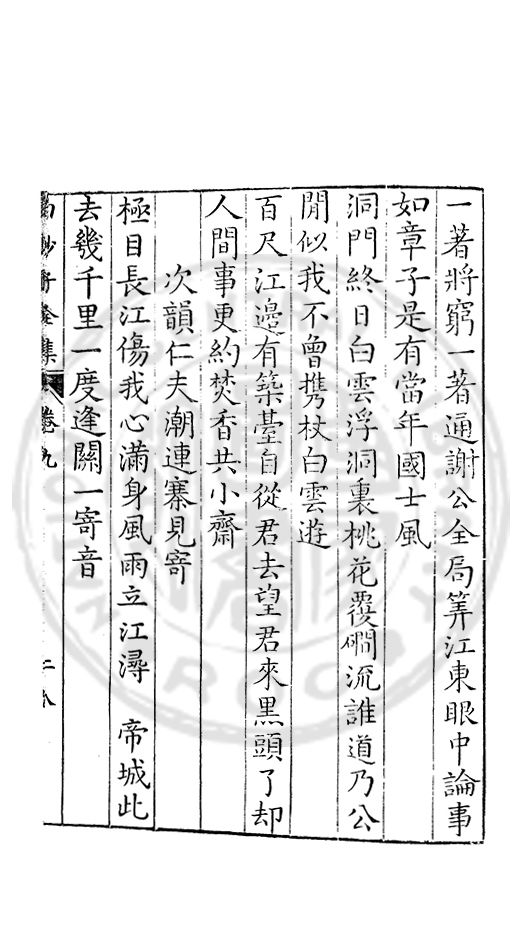 一著將窮一著通謝公全局筭江東眼中論事
如章子是有當年國士風
洞門終日白雲浮洞裏桃花覆磵流誰道乃公
閒似我不曾携杖白雲遊
百尺江邊有築臺自從君去望君來黑頭了却
人間事更約焚香共小齋
次韻仁夫潮連寨見寄
極目長江傷我心滿身風雨立江潯　帝城此
去幾千里一度逢關一寄音
全集　卷九